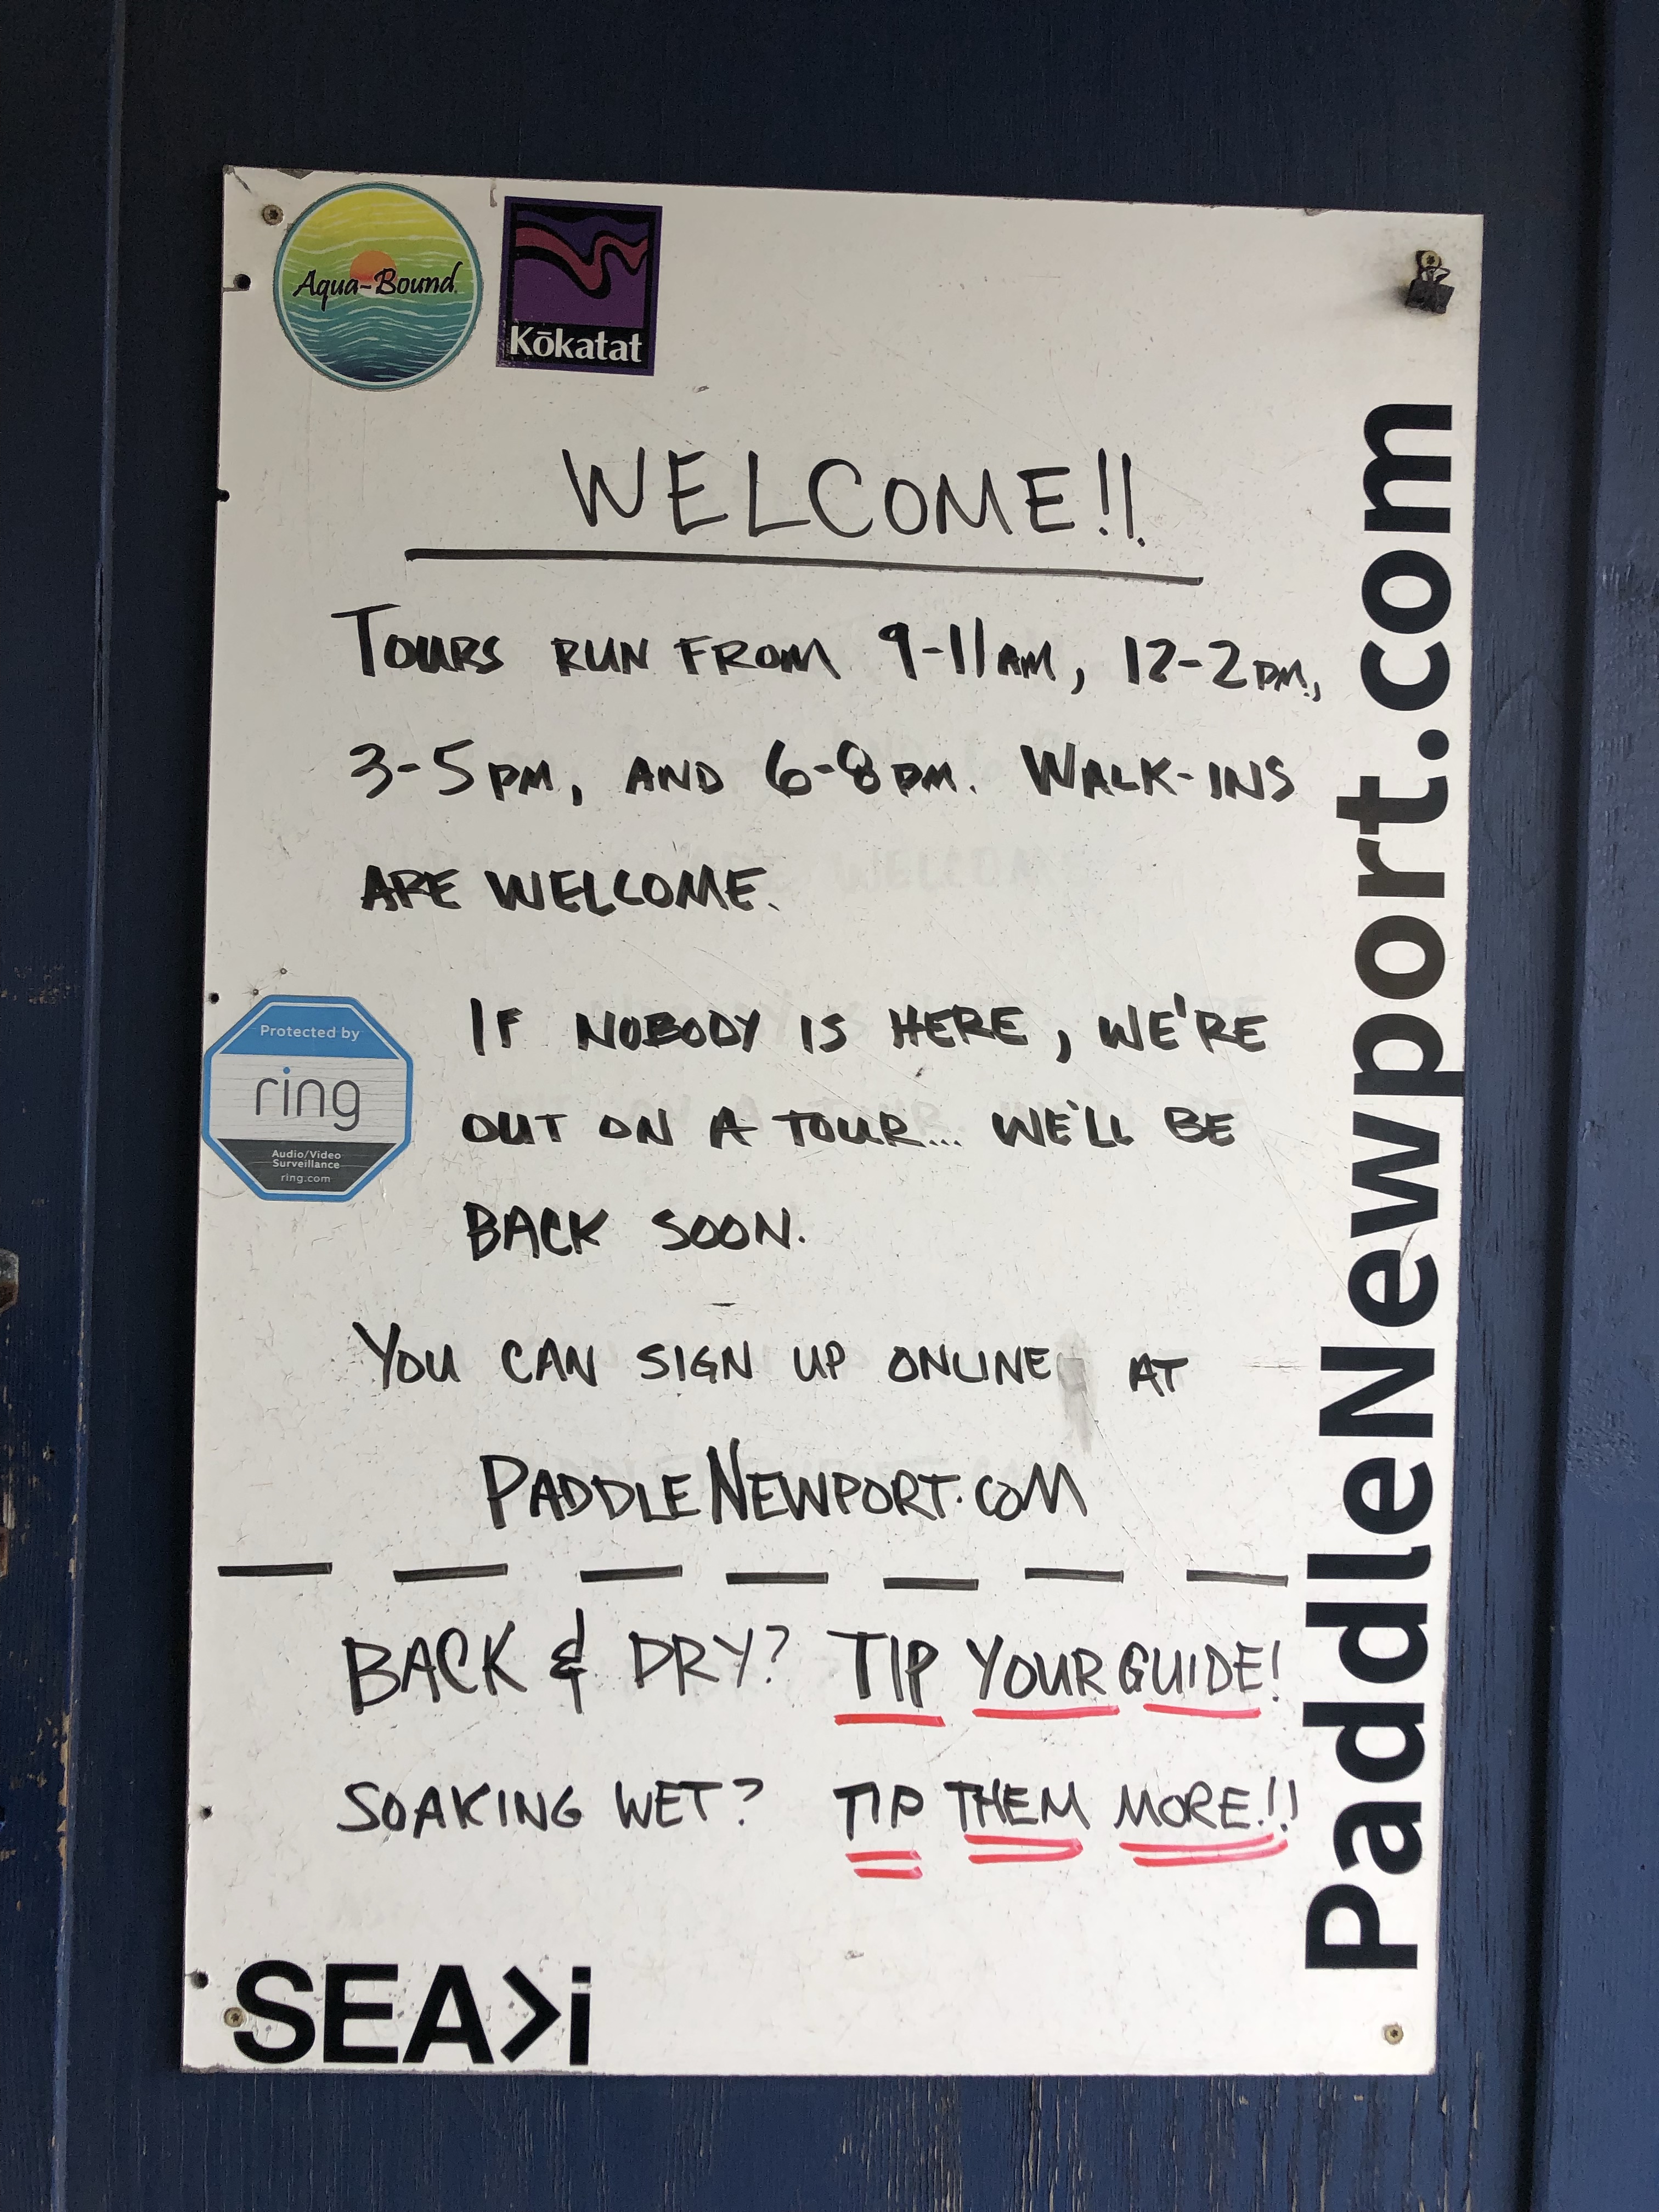 Aqua-Bound
Kōkatat
WELCOME!!
TOURS RUN FROM 9-11AM, 12-2PM,
3-5PM, AND 6-8PM. WALK-INS
ARE WELCOME.
Protected by
ring
Audio/Video
Surveillance
ring.com
IF NOBODY IS HERE, WE'RE
OUT ON A TOUR... WE'LL BE
BACK SOON.
YOU CAN SIGN UP ONLINE AT
PADDLENEWPORT.COM
BACK & DRY? TIP YOUR GUIDE!
SOAKING WET? TIP THEM MORE!!
SEA>i
PaddleNewport.com